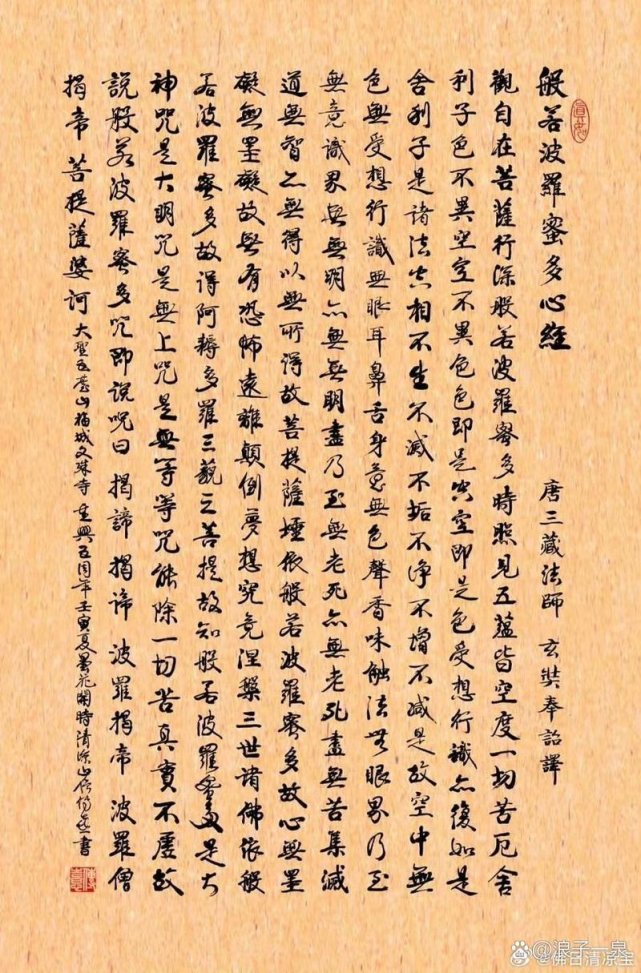 般若波羅蜜多心經 唐三藏法師 玄奘奉詔譯
觀自在菩薩行深般若波羅蜜多時照見五蘊皆空度一切苦厄舍
利子色不異空空不異色色即是空空即是色受想行識亦復如是
舍利子是諸法空相不生不滅不垢不淨不增不減是故空中無
色無受想行識無眼耳鼻舌身意無色聲香味触法無眼界乃至
無意識界無無明亦無無明盡乃至無老死亦無老死盡無苦集滅
道無智亦無得以無所得故菩提薩埵依般若波羅蜜多故心無罣
礙無罣礙故無有恐怖遠離顛倒夢想究竟涅槃三世諸佛依般
若波羅蜜多故得阿耨多羅三藐三菩提故知般若波羅蜜多是大
神咒是大明咒是無上咒是無等等咒能除一切苦真實不虛故
說般若波羅蜜多咒即說咒曰 揭諦 揭諦 波羅揭帝 波羅僧
揭帝 菩提薩婆訶 大聖五臺山 文殊寺重興五周年壬寅夏曇花開時清涼山 書
@浪子一泉